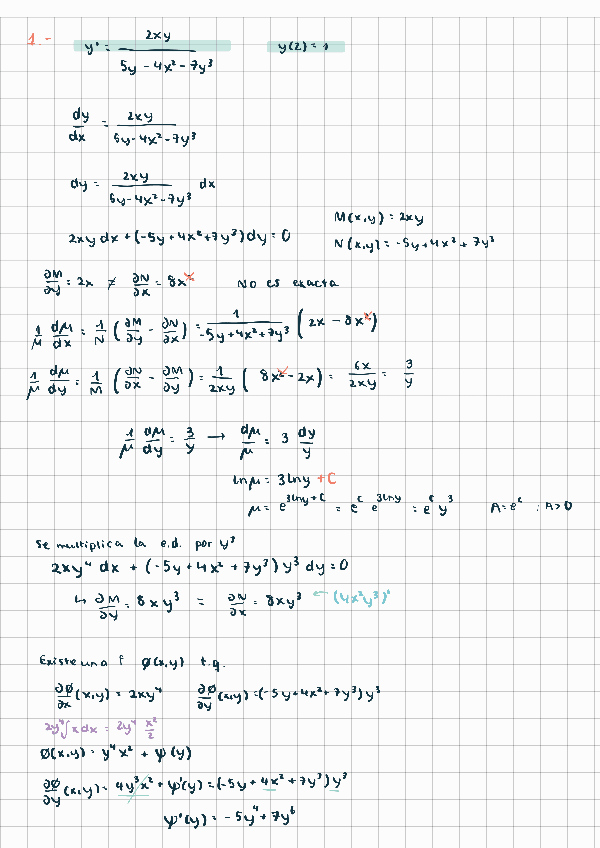 1.- y' = 2xy / (5y - 4x² - 7y³) y(2) = 1
dy/dx = 2xy / (5y - 4x² - 7y³)
dy = 2xy / (5y - 4x² - 7y³) dx
M(x,y) = 2xy
2xy dx + (-5y + 4x² + 7y³) dy = 0
N(x,y) = -5y + 4x² + 7y³
∂M/∂y = 2x ≠ ∂N/∂x = 8x No es exacta
1/μ dμ/dx = 1/N (∂M/∂y - ∂N/∂x) = 1/(-5y + 4x² + 7y³) (2x - 8x)
1/μ dμ/dy = 1/M (∂N/∂x - ∂M/∂y) = 1/2xy (8x - 2x) = 6x/2xy = 3/y
1/μ dμ/dy = 3/y → dμ/μ = 3 dy/y
lnμ = 3lny + C
μ = e^(3lny+C) = e^c e^(3lny) = e^c y³ A = e^c ; A > 0
Se multiplica la e.d. por y³
2xy⁴ dx + (-5y + 4x² + 7y³) y³ dy = 0
↳ ∂M/∂y = 8xy³ = ∂N/∂x = 8xy³ ← (4x²y³)'
Existe una f Ø(x,y) t.q.
∂Ø/∂x (x,y) = 2xy⁴ ∂Ø/∂y (x,y) = (-5y + 4x² + 7y³) y³
2y⁴∫x dx = 2y⁴ x²/2
Ø(x,y) = y⁴x² + ψ(y)
∂Ø/∂y (x,y) = 4y³x² + ψ'(y) = (-5y + 4x² + 7y³) y³
ψ'(y) = -5y⁴ + 7y⁶